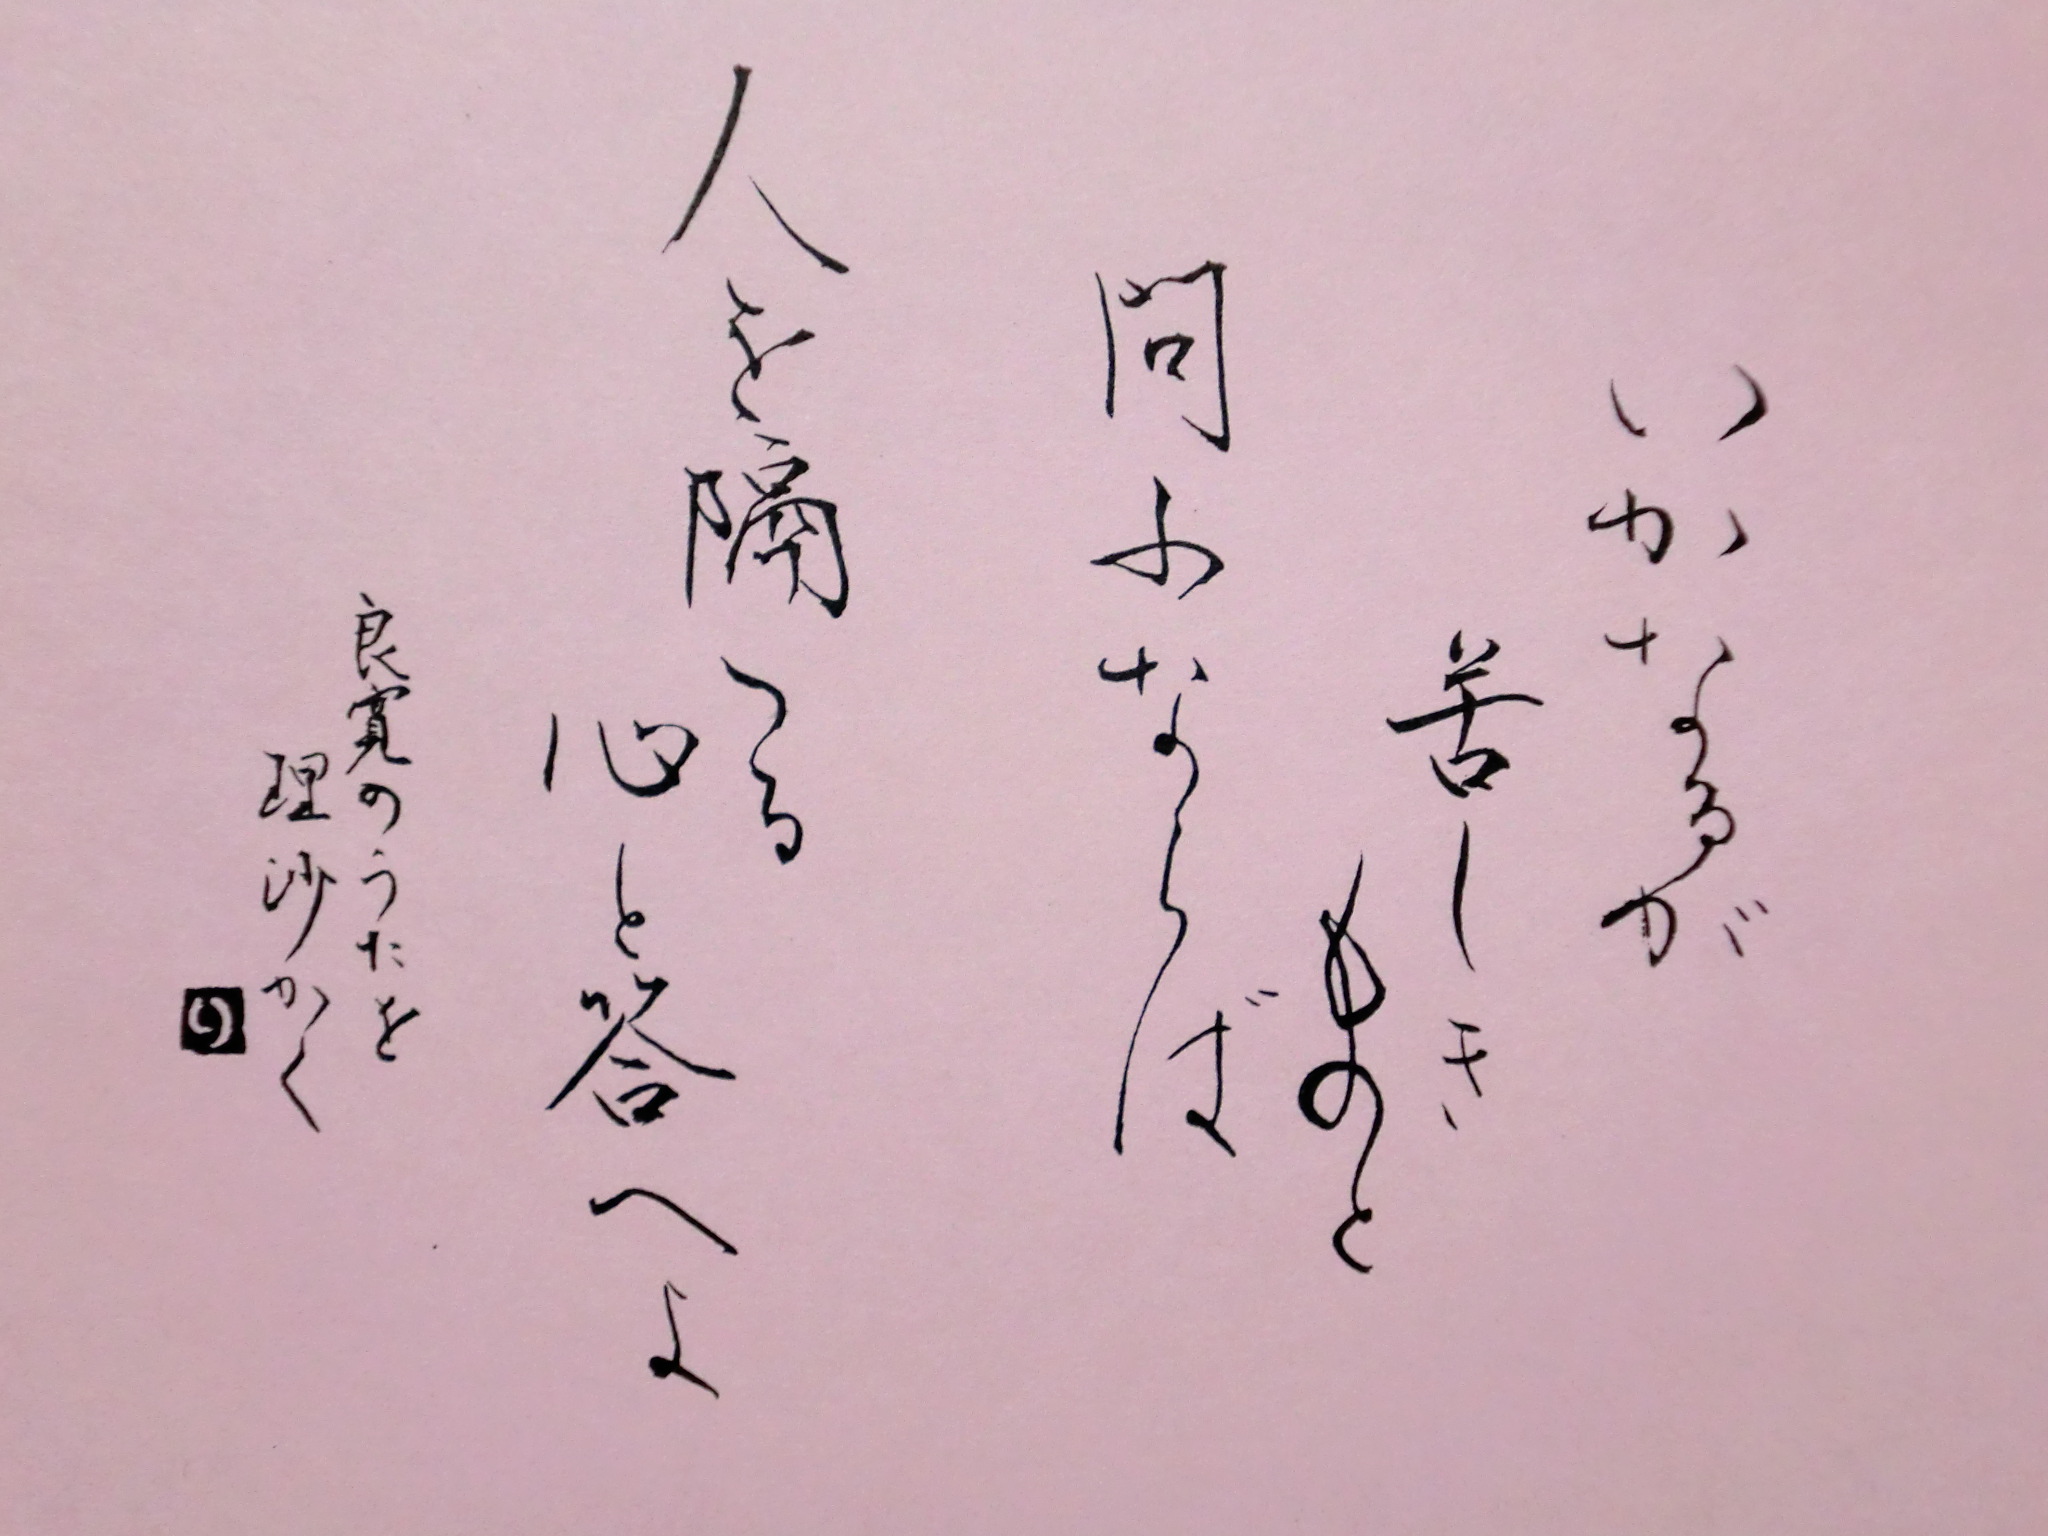 いかなるが
苦しき
ものと
問ふならば
人を隔つる
心と答へよ
良寛のうたを
理沙かく